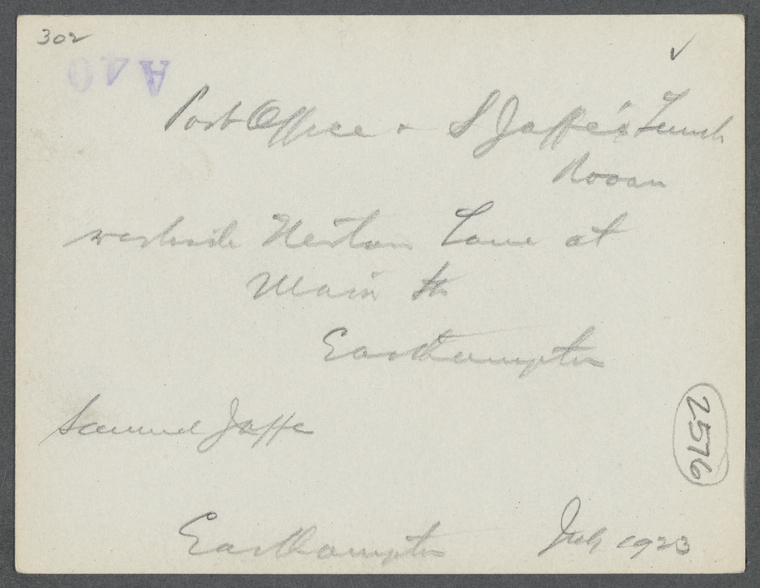 302
A40
Post Office + S Jaffe's Lunch
Room
westside Newtown Lane at
Main St
Easthampton
Samuel Jaffe
2576
Easthampton July 1923